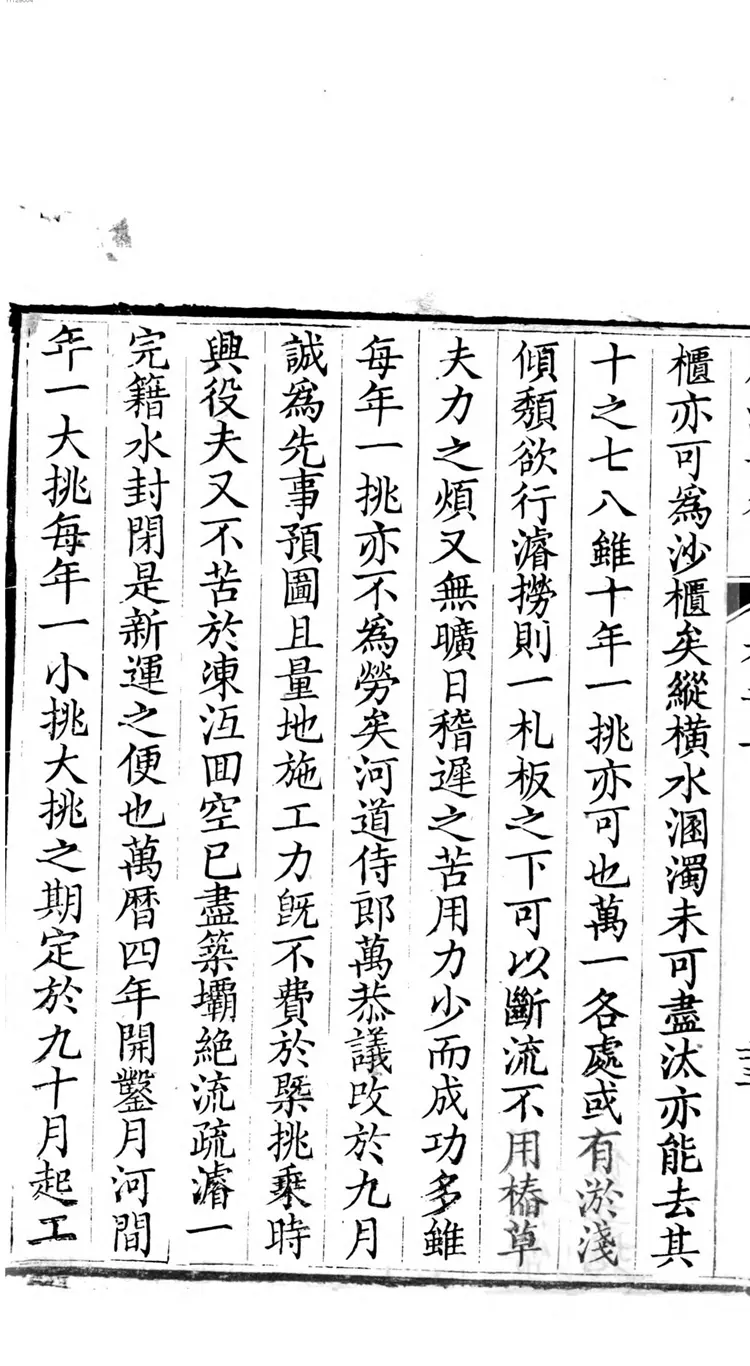 櫃亦可為沙櫃矣縱橫水溷濁未可盡汰亦能去其
十之七八雖十年一挑亦可也萬一各處或有淤淺
傾頹欲行濬撈則一札板之下可以斷流不用樁草
夫力之煩又無曠日稽遲之苦用力少而成功多雖
每年一挑亦不為勞矣河道侍郎萬恭議改於九月
誠為先事預圖且量地施工力旣不費於槩挑乗時
興役夫又不苦於凍沍囬空已盡築壩絕流疏濬一
完籍水封閉是新運之便也萬曆四年開鑿月河間
年一大挑每年一小挑大挑之期定於九十月起工